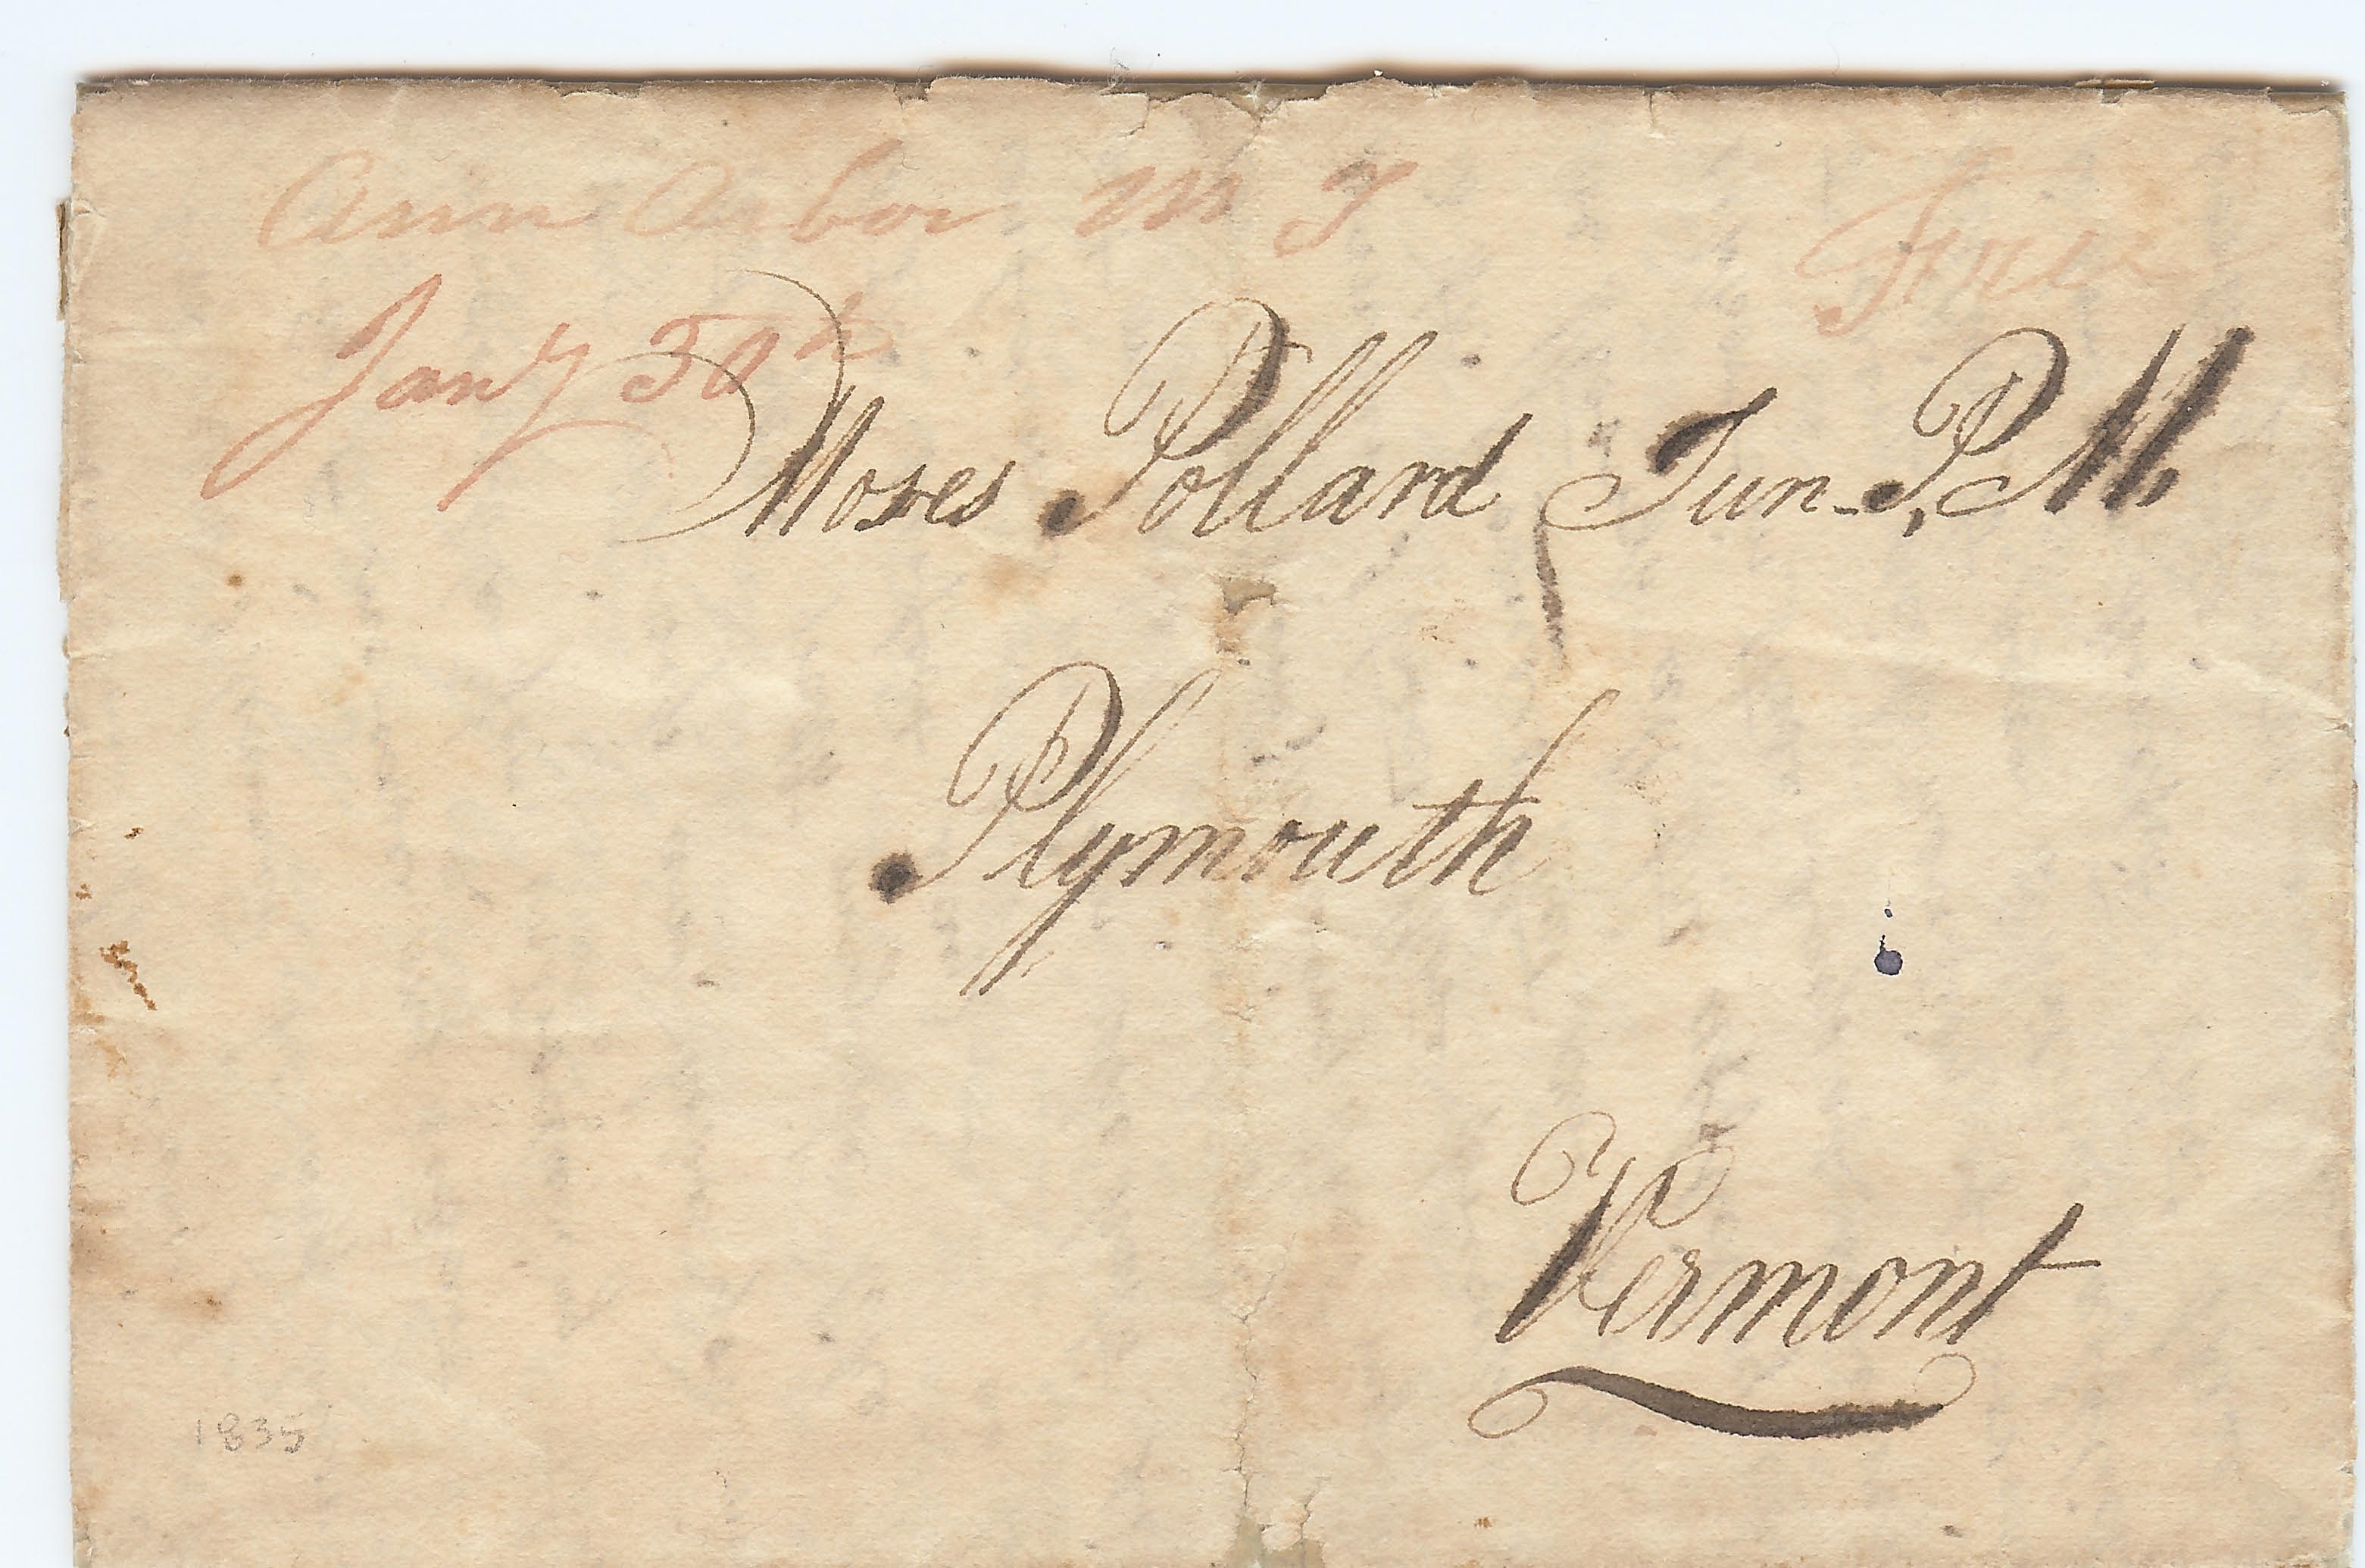 Ann Arbor M T
Free
Jany 30th
Moses Pollard Jun. P, M,
Plymouth
Vermont
1835